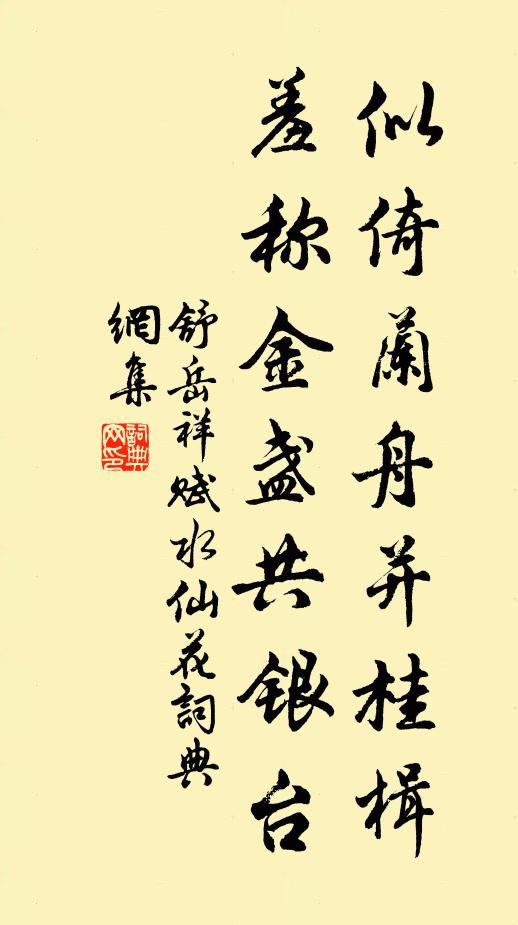 似倚蘭舟并桂楫
羞称金盏共银台
舒岳祥赋水仙花詞典
網集
詞典
网印